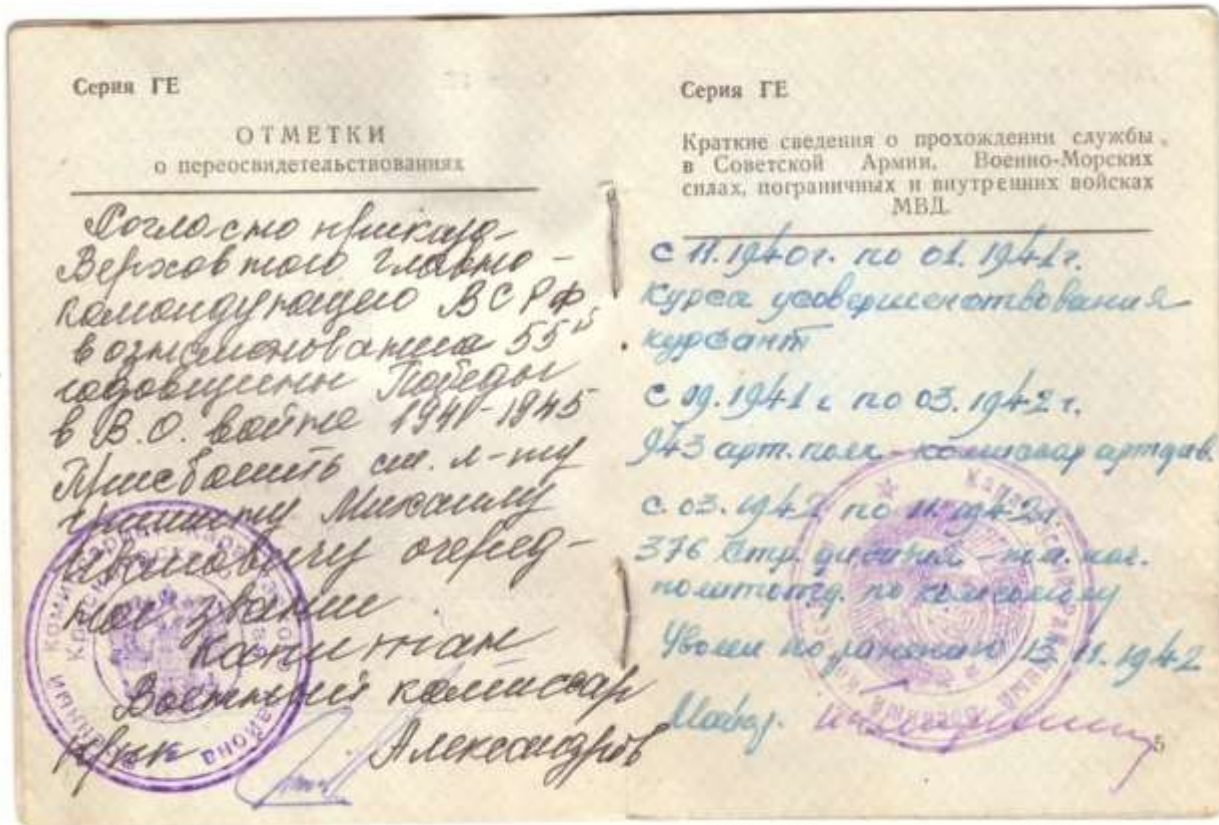 Серия ГЕ
ОТМЕТКИ
о переосвидетельствованиях
Согласно приказа
Верховного Главно-
командующего ВС РФ
в ознаменовании 55
годовщины Победы
в В.О. войне 1941-1945
Присвоить ст. л-ту
Михаилу
очеред-
ное звание
Капитан
Военный комиссар
Александров
Серия ГЕ
Краткие сведения о прохождении службы
в Советской Армии, Военно-Морских
силах, пограничных и внутренних войсках
МВД.
с 11.1940г. по 01.1941г.
Курсы усовершенствования
курсант
с 09.1941г по 03.1942г.
943 арт. полк - комиссар артдив.
с 03.1942 по 11.1942г.
376 стр. дивизия - пом. нач.
политотд. по комсомолу
Уволен по ранению 13.11.1942
5